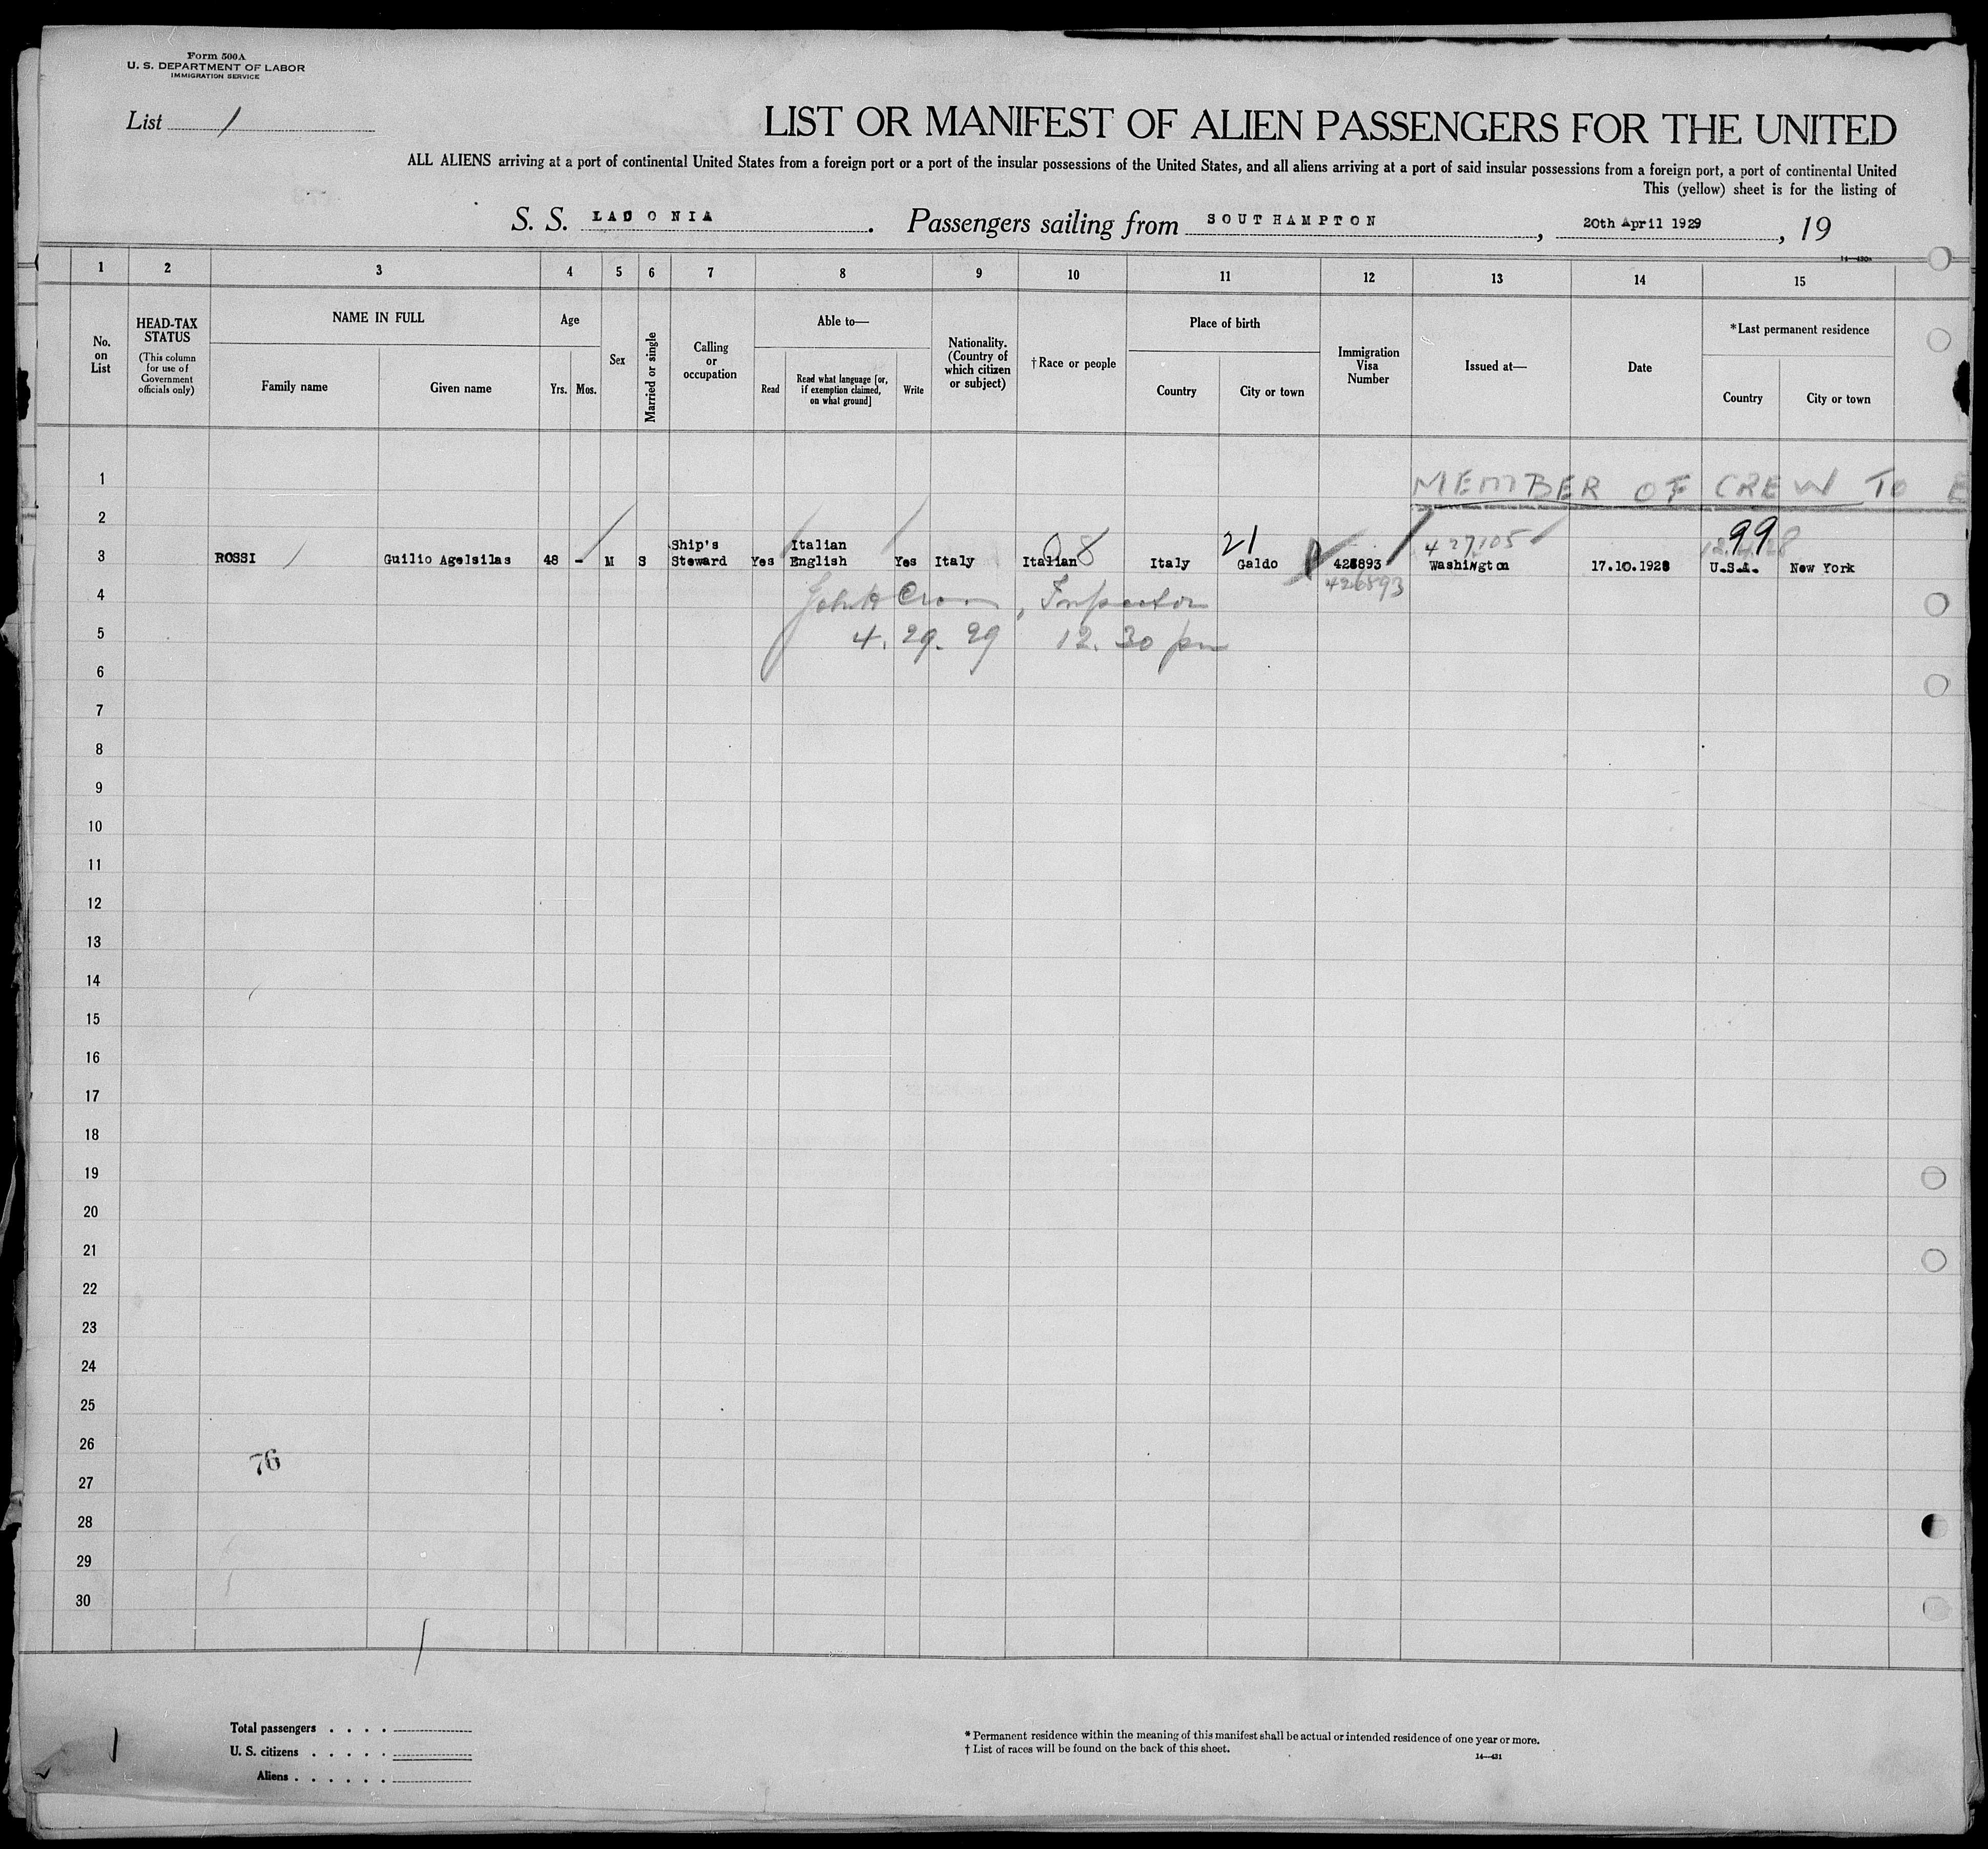 Form 500A
U. S. DEPARTMENT OF LABOR
IMMIGRATION SERVICE
List 1
LIST OR MANIFEST OF ALIEN PASSENGERS FOR THE UNITED
ALL ALIENS arriving at a port of continental United States from a foreign port or a port of the insular possessions of the United States, and all aliens arriving at a port of said insular possessions from a foreign port, a port of continental United
This (yellow) sheet is for the listing of
S. S. LACONIA. Passengers sailing from SOUTHAMPTON, 20th April 1929, 19
14—430a
1 2 3 4 5 6 7 8 9 10 11 12 13 14 15
No. on List
HEAD-TAX STATUS
(This column for use of Government officials only)
NAME IN FULL
Family name
Given name
Age
Yrs.
Mos.
Sex
Married or single
Calling or occupation
Able to—
Read
Read what language [or, if exemption claimed, on what ground]
Write
Nationality. (Country of which citizen or subject)
†Race or people
Place of birth
Country
City or town
Immigration Visa Number
Issued at—
Date
*Last permanent residence
Country
City or town
1 MEMBER OF CREW TO E
2
427105 99
3 ROSSI Guilio Agelsilas 48 - M S Ship's Steward Yes Italian English Yes Italy Italian 8 Italy 21 Galdo 428893 Washington 17.10.1928 U.S.A. New York
426893
4 Inspector
5 4. 29. 29 12. 30 pm
6
7
8
9
10
11
12
13
14
15
16
17
18
19
20
21
22
23
24
25
26
76
27
28
29
30
Total passengers . . . .
U. S. citizens . . . . .
Aliens . . . . . .
* Permanent residence within the meaning of this manifest shall be actual or intended residence of one year or more.
† List of races will be found on the back of this sheet.
14—431